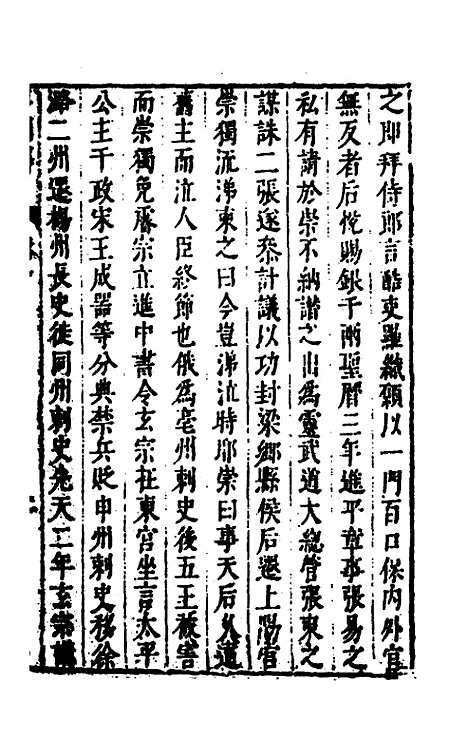 之即拜侍郎言酷吏羅織願以一門百口保內外官
無反者后悅賜銀千兩聖曆三年進平章事張易之
私有請於崇不納譖之出爲靈武道大總管張柬之
謀誅二張遂叅計議以功封梁鄉縣侯后遷上陽宮
崇獨流涕柬之曰今豈涕泣時耶崇曰事天后久違
舊主而泣人臣終節也俄爲亳州刺史後五王被害
而崇獨免睿宗立進中書令玄宗在東宮坐言太平
公主干政宋王成器等分典禁兵貶申州刺史移徐
潞二州還楊州長史徙同州刺史先天二年玄宗講